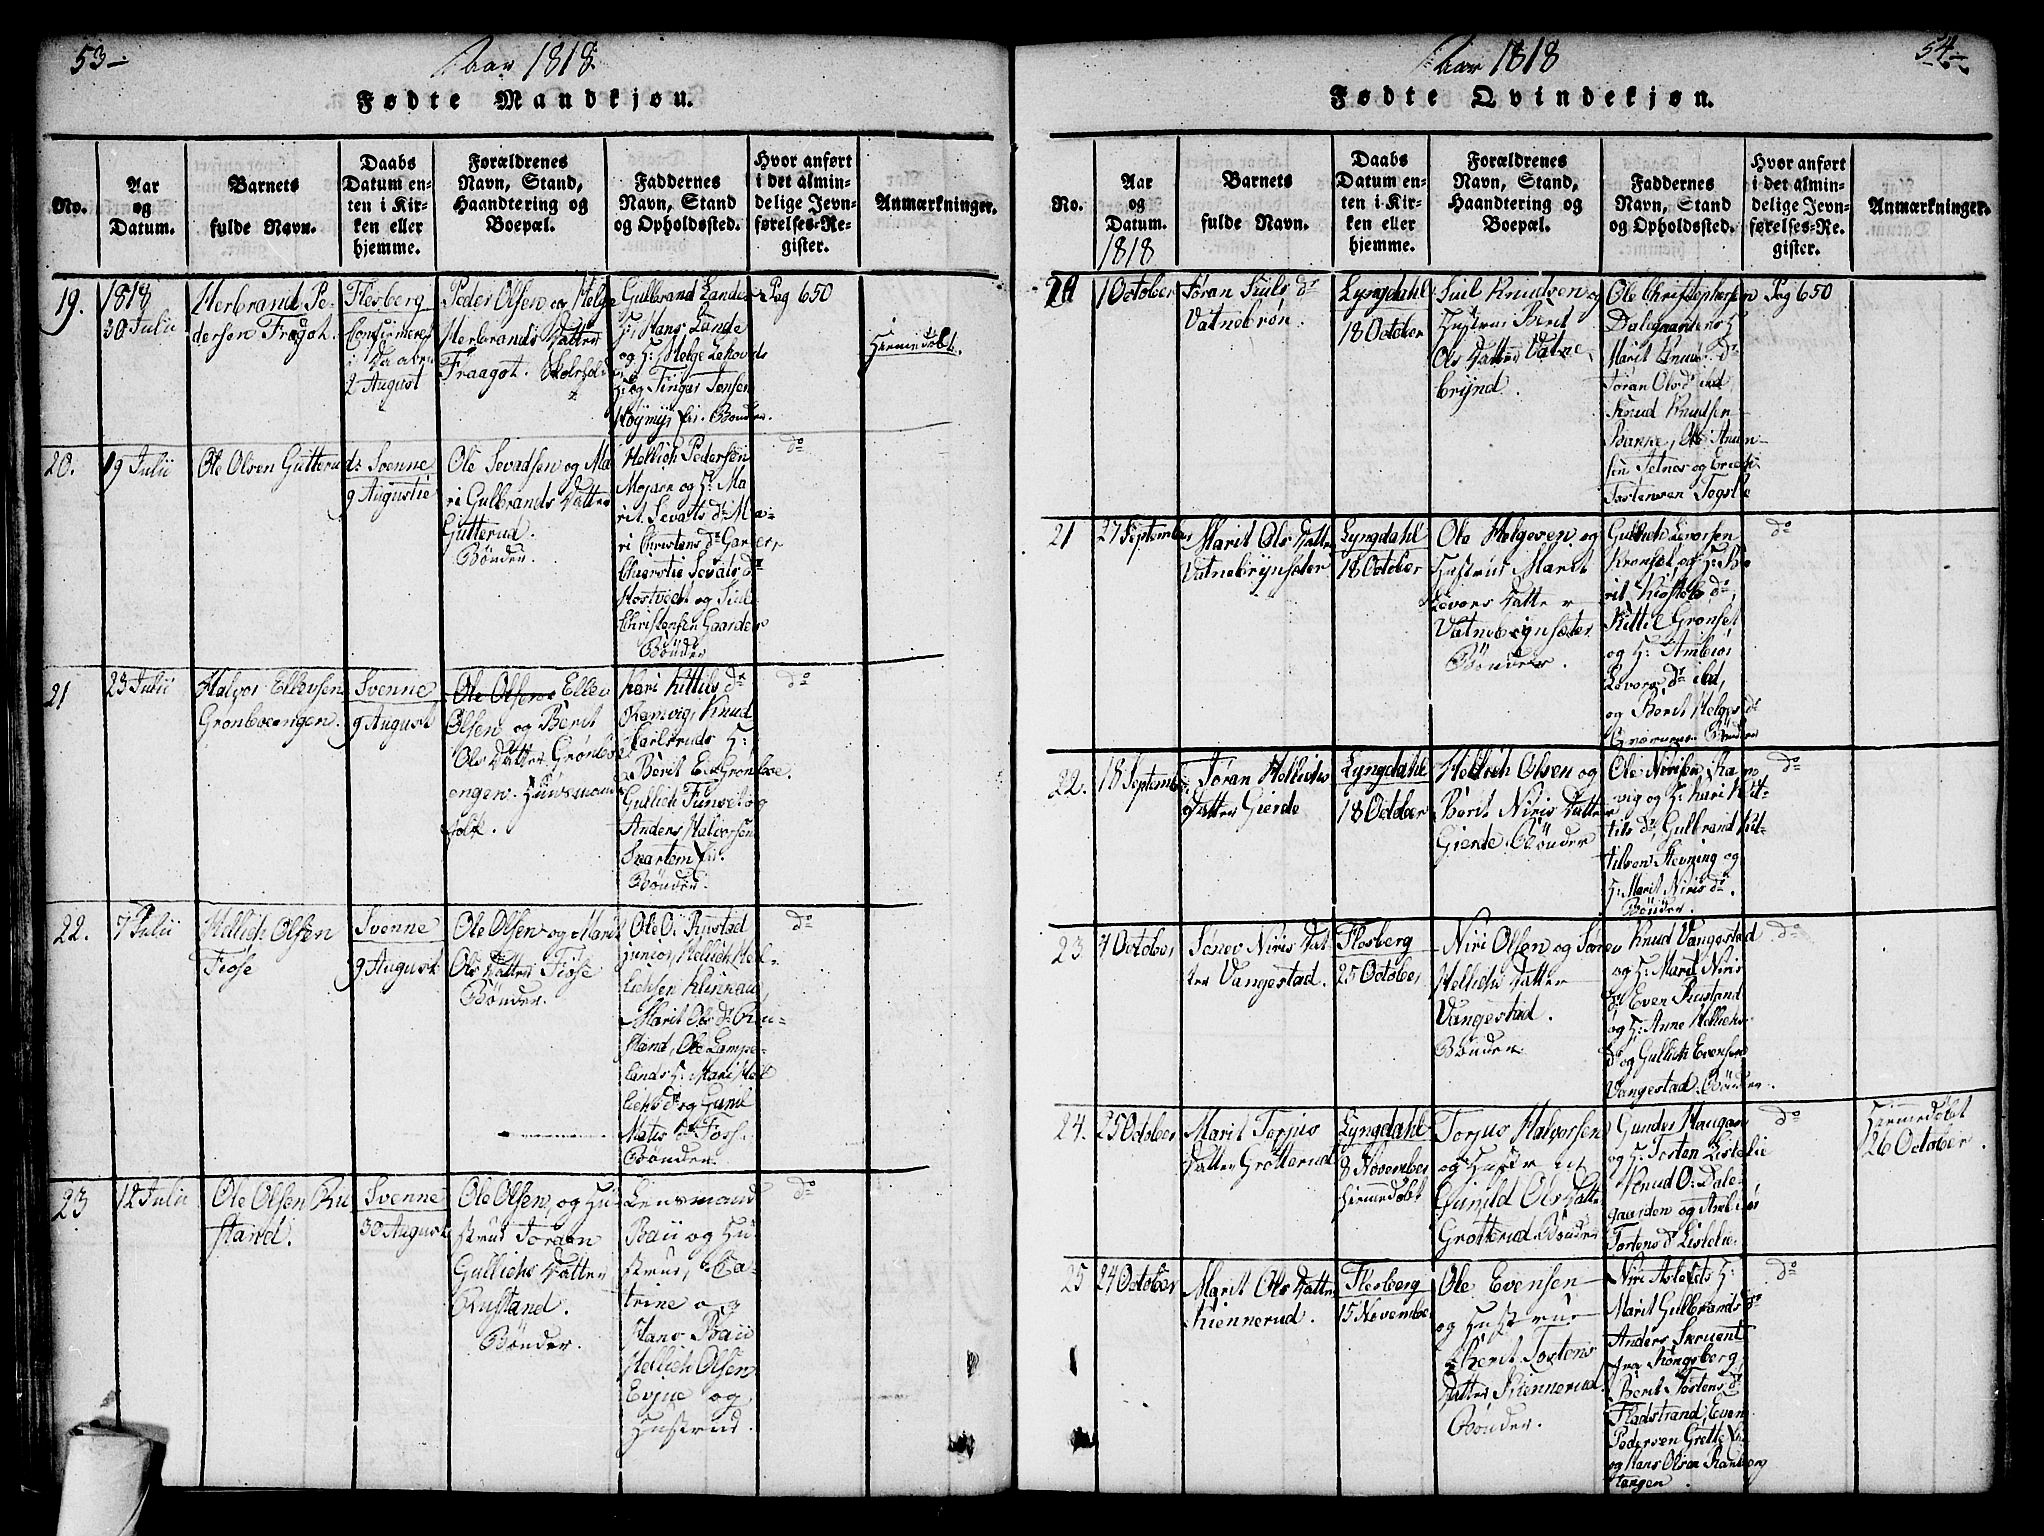 53-
Aar 1818.
Fødte Mandkjøn.
No.
Aar
og
Datum.
Barnets
fulde Navn.
Daabs
Datum en-
ten i Kir-
ken eller
hjemme.
Forældrenes
Navn, Stand,
Haandtering og
Boepæl.
Faddernes
Navn, Stand
og Opholdssted.
Hvor anført
i det almin-
delige Jevn-
førelses-Re-
gister.
Anmærkninger.
19.
1818
30 Julii
Herbrand Pe-
dersen Fragot.
Flesberg
Confirmeret
i Daaben
2 August
Peder Olsen og Helge
Herbrands Datter
Fraagot.
Gulbrand Landes
H: Hans Lunde
og H: Helge Lekovds
H: og Tingar Jensen
Bønder.
Pag 650
Hiemedøbt.
20.
19 Julii
Ole Olsen Gutterud
Svenne
9 Augustii
Ole Sevadsen og Ma
ri Gulbrands Datter
Gutterud.
Bønder.
Hellich Pedersen
Mojaen og H: Ma
rit Sevats dr Ma-
ri Christens dr Garder,
Sevats dr
Hostvedt og Siul
Christensen Gaarder
Bønder
do
21
23 Julii
Halvor Ellevsen
Grønboeengen.
Svenne
9 August
Ole Olsen Ellev
Olsen og Berit
Ols Datter Grønboe
engen. Huusmands
folk.
Kari Kittils dr
Ramvig, Knud
Karlsruds H:
Berit E. Grønboe.
Gullich Funset og
Anders Halvorsen
Svartem
Bønder.
do
22.
7 Julii
Hellich Olsen
Fiøse
Svenne
9 August
Ole Olsen og Marit
Ols Datter Fiøse
Bønder.
Ole O. Rustad
junior, Hellich Hel-
lichsen Klinnau
Marit Ols dr Ru-
stand, Ole Lampe-
lands H: Mari Hel
lichs dr og Gunil
Mats dr Foss.
Bønder
do
23
12 Julii
Ole Olsen Ru
stand.
Svenne
30 August
Ole Olsen og Hu
strue Joraan
Gullichs Datter
Rustand.
Bønder.
Lensmand
Baii og Hu
strue, Ca-
trine og
Hans Baii
Hellich Olsen
Evjue og
Hustrud.
do
54-
Aar 1818
Fødte Qvindekjøn.
No.
Aar
og
Datum.
1818
Barnets
fulde Navn.
Daabs
Datum en-
ten i Kir-
ken eller
hjemme.
Forældrenes
Navn, Stand,
Haandtering og
Boepæl.
Faddernes
Navn, Stand
og Opholdssted.
Hvor anført
i det almin-
delige Jevn-
førelses-Re-
gister.
Anmærkninger.
20
1 October
Jøran Siuls dr
Vatnebrøn.
Lyngdahl
18 October
Siul Knudsen og
Hustrue Berit
Ols Datter Vatne
brynd.
Ole Christophersen
Dalegaardens H
Marit Knuds dr
Jøran Ols dr ibd,
Knud Knudsen
Bakke, Ole Amun-
sen Jetnes og Erich
Tostensen Togstie
Pag 650
21
27 September
Marit Ols Datter
Vatnebrynseter
Lyngdahl
18 October
Ole Helgesen og
Hustrue Marit
Levors Datter
Vatnebrynsæter
Bønder.
Gullich Levorsen
og H: Be
rit dr
Kittil Grønset
og H: Ambiør
Levors dr ibd,
og Berit Helges dr
Bønder
do
22.
18 September
Jøran Hellichs
Datter Gierde
Lyngdahl
18 October
Hellich Olsen og
Berit Niris Datter
Gierde Bønder
Ole Nirisen Ram
vig og H: Kari Kit-
tils dr, Gulbrand Kit-
tilsen Stevning og
H: Marit Niris dr.
Bønder.
do
23
7 October
Sønev Niris Dat
ter Vangestad.
Flesberg
25 October
Niri Olsen og Sønev
Hellichs Datter
Vangestad.
Bønder
Knud Vangestad
og H: Marit Niris
dr Even Rustand
og H: Anne Hellichs
dr og Gullich Evensen
Vangestad. Bønder.
do
24.
25 October
Marit Torjus
Datter Grøtterud
Lyngdahl
8 November
hiemedøbt
Torjus Halvorsen
og Hustrue
Gunild Ols Datter
Grøtterud Bønder
Gunder Haugan
og H: Tosten Listelie
Knud O. Dale-
gaarden og
Tostens dr Listelie.
do
Hiemedøbt
26 October.
25
24 October
Marit Ols Datter
Kiennerud.
Flesberg
15 November
Ole Evensen
og Hustrue
Berit Tostens
Datter Kiennerud.
Bønder.
Niri Aslefets H:
Marit Gulbrands dr
Anders Skruent
fra Kongsberg,
Berit Tostens dr
Fladstrand, Even
Pedersen Grette
og Hans Olsen
tangen.
do